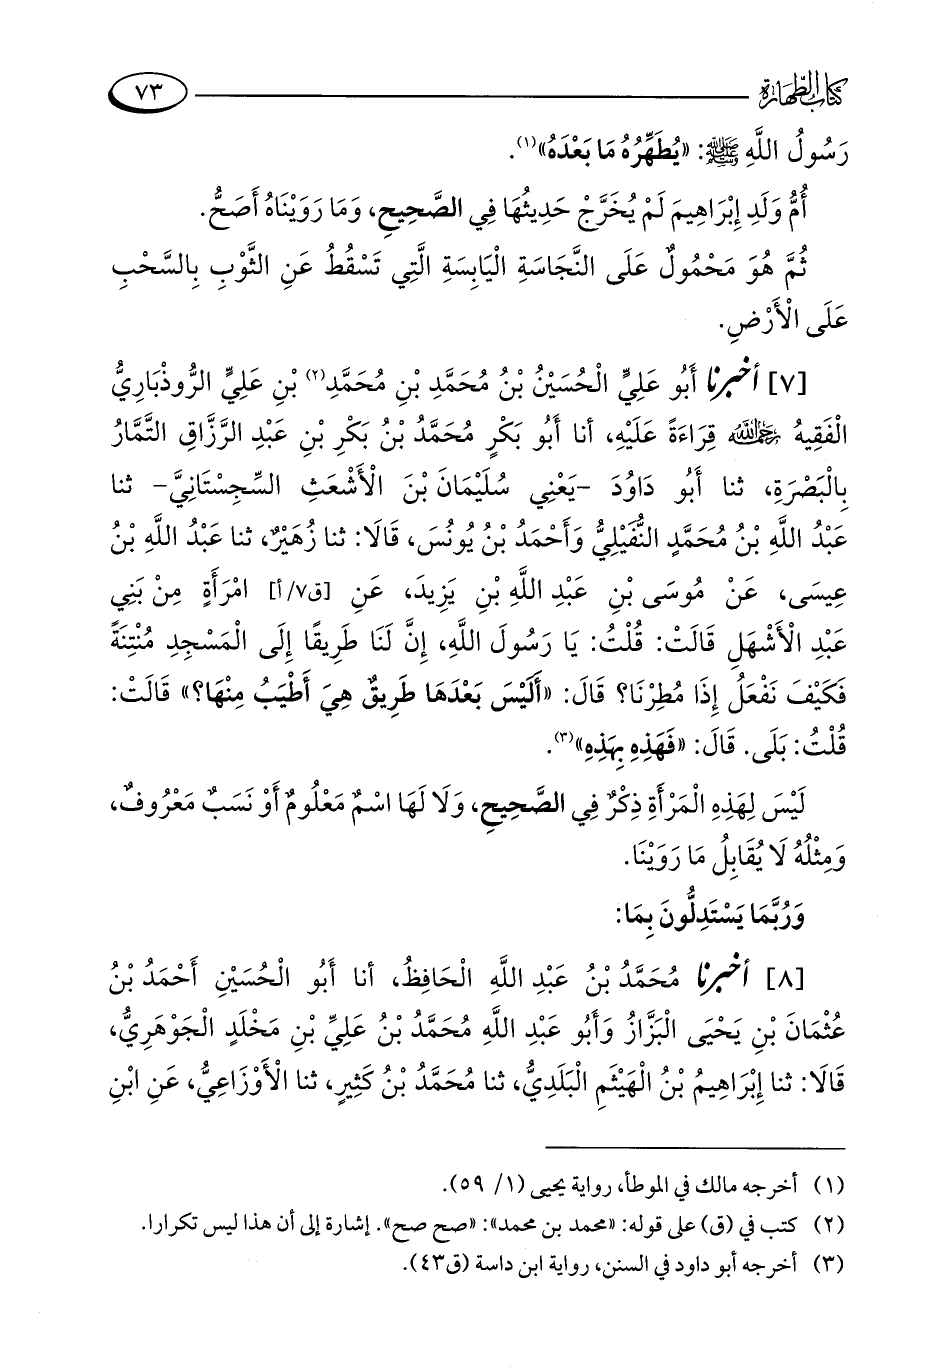 كتاب الطهارة ٧٣
رَسُولُ اللَّهِ ﷺ: «يُطَهِّرُهُ مَا بَعْدَهُ»(١).
أُمُّ وَلَدِ إِبْرَاهِيمَ لَمْ يُخَرَّجْ حَدِيثُهَا فِي الصَّحِيحِ، وَمَا رَوَيْنَاهُ أَصَحُّ.
ثُمَّ هُوَ مَحْمُولٌ عَلَى النَّجَاسَةِ الْيَابِسَةِ الَّتِي تَسْقُطُ عَنِ الثَّوْبِ بِالسَّحْبِ
عَلَى الْأَرْضِ.
[٧] أخبرنا أَبُو عَلِيٍّ الْحُسَيْنُ بْنُ مُحَمَّدِ بْنِ مُحَمَّدِ(٢) بْنِ عَلِيٍّ الرُّوذْبَارِيُّ
الْفَقِيهُ رَحِمَهُ اللَّهُ قِرَاءَةً عَلَيْهِ، أنا أَبُو بَكْرٍ مُحَمَّدُ بْنُ بَكْرِ بْنِ عَبْدِ الرَّزَّاقِ التَّمَّارُ
بِالْبَصْرَةِ، ثنا أَبُو دَاوُدَ -يَعْنِي سُلَيْمَانَ بْنَ الْأَشْعَثِ السِّجِسْتَانِيَّ- ثنا
عَبْدُ اللَّهِ بْنُ مُحَمَّدٍ النُّفَيْلِيُّ وَأَحْمَدُ بْنُ يُونُسَ، قَالَا: ثنا زُهَيْرٌ، ثنا عَبْدُ اللَّهِ بْنُ
عِيسَى، عَنْ مُوسَى بْنِ عَبْدِ اللَّهِ بْنِ يَزِيدَ، عَنِ [ق٧/أ] امْرَأَةٍ مِنْ بَنِي
عَبْدِ الْأَشْهَلِ قَالَتْ: قُلْتُ: يَا رَسُولَ اللَّهِ، إِنَّ لَنَا طَرِيقًا إِلَى الْمَسْجِدِ مُنْتِنَةً
فَكَيْفَ نَفْعَلُ إِذَا مُطِرْنَا؟ قَالَ: «أَلَيْسَ بَعْدَهَا طَرِيقٌ هِيَ أَطْيَبُ مِنْهَا؟» قَالَتْ:
قُلْتُ: بَلَى. قَالَ: «فَهَذِهِ بِهَذِهِ»(٣).
لَيْسَ لِهَذِهِ الْمَرْأَةِ ذِكْرٌ فِي الصَّحِيحِ، وَلَا لَهَا اسْمٌ مَعْلُومٌ أَوْ نَسَبٌ مَعْرُوفٌ،
وَمِثْلُهُ لَا يُقَابِلُ مَا رَوَيْنَا.
وَرُبَّمَا يَسْتَدِلُّونَ بِمَا:
[٨] أخبرنا مُحَمَّدُ بْنُ عَبْدِ اللَّهِ الْحَافِظُ، أنا أَبُو الْحُسَيْنِ أَحْمَدُ بْنُ
عُثْمَانَ بْنِ يَحْيَى الْبَزَّازُ وَأَبُو عَبْدِ اللَّهِ مُحَمَّدُ بْنُ عَلِيِّ بْنِ مَخْلَدٍ الْجَوْهَرِيُّ،
قَالَا: ثنا إِبْرَاهِيمُ بْنُ الْهَيْثَمِ الْبَلَدِيُّ، ثنا مُحَمَّدُ بْنُ كَثِيرٍ، ثنا الْأَوْزَاعِيُّ، عَنِ ابْنِ
(١) أخرجه مالك في الموطأ، رواية يحيى (١/ ٥٩).
(٢) كتب في (ق) على قوله: «محمد بن محمد»: «صح صح». إشارة إلى أن هذا ليس تكرارا.
(٣) أخرجه أبو داود في السنن، رواية ابن داسة (ق٤٣).